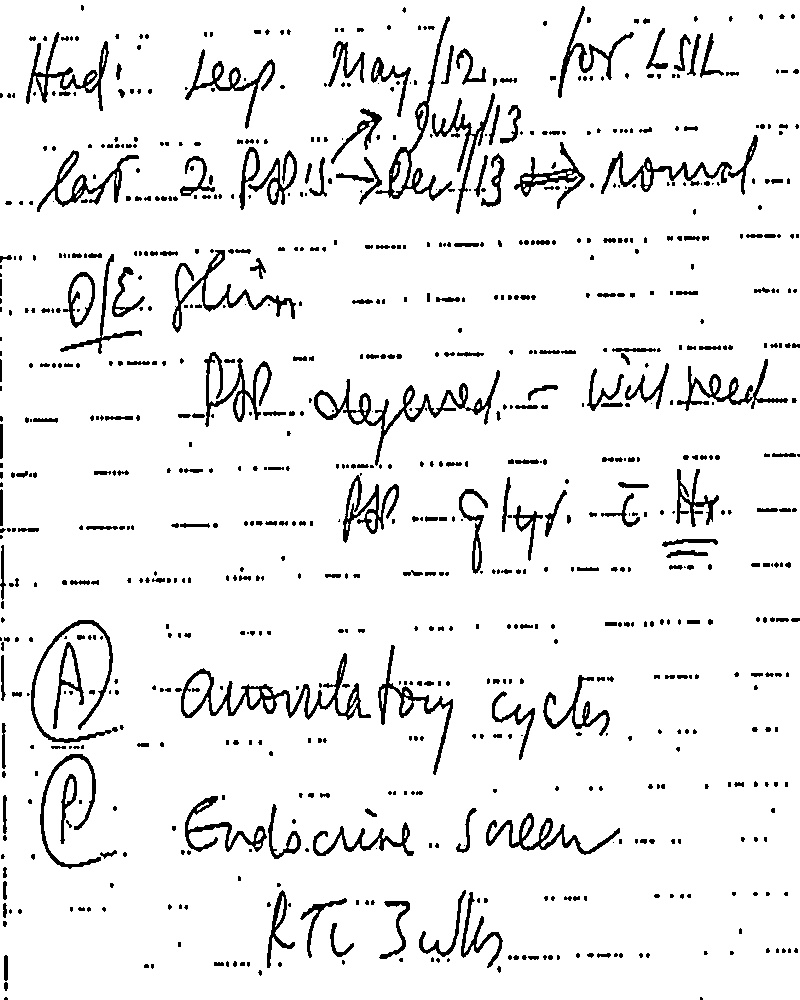 Had: Leep May/12 for LSIL
July/13
last 2 PAP's → Dec/13 ⇒ normal
O/E
PAP deferred, - Will need
PAP q 1yr. c̄ Hx
(A) anovulatory cycles
(P) Endocrine screen
RTC 3 wks